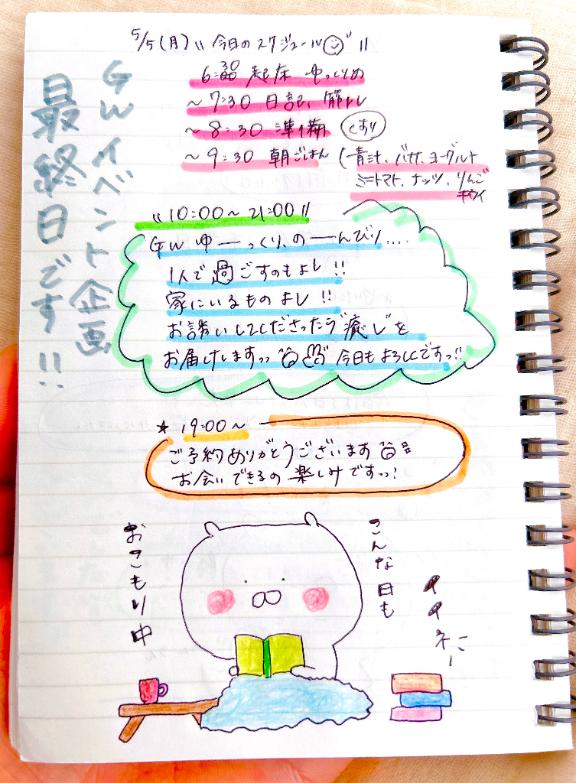 5/5(月) " 今日のスケジュール "
6:30 起床 ゆっくりめ
~7:30 日記、筋トレ
~8:30 準備 くすり
~9:30 朝ごはん (青汁、バナナ、ヨーグルト
ミニトマト、ナッツ、りんご
キウイ
GWイベント企画
最終日です!!
"10:00~21:00"
GWゆーっくり、のーんびり....
1人で過ごすのもよし!!
家にいるものよし!!
お誘いしてくださったら"癒し"を
お届けしますっっ 今日もよろしくですっ!!
★ 19:00~
ご予約ありがとうございます
お会いできるの楽しみですっっ!
こんな日も
イイネー
おこもり中